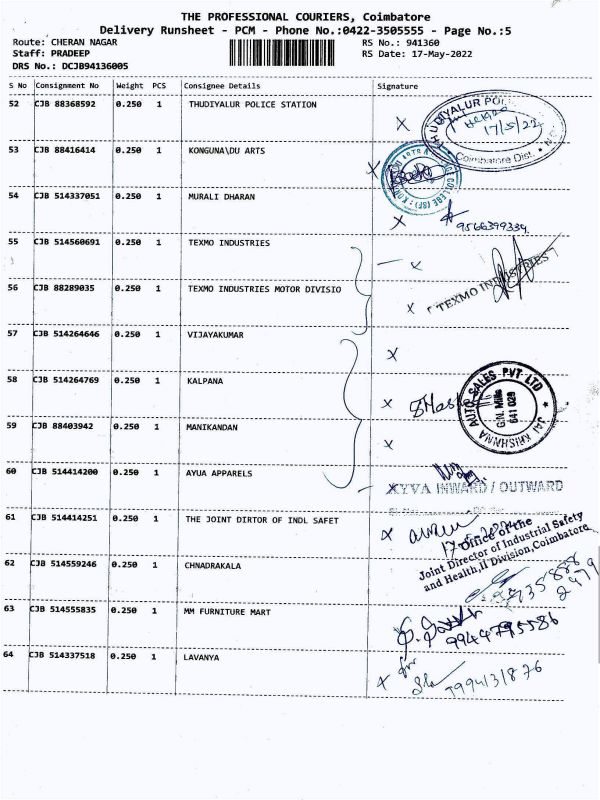 THE PROFESSIONAL COURIERS, Coimbatore
Delivery Runsheet - PCM - Phone No.:0422-3505555 - Page No.:5
Route: CHERAN NAGAR
RS No.: 941360
Staff: PRADEEP
RS Date: 17-May-2022
DRS No.: DCJB94136005
S No Consignment No Weight PCS Consignee Details Signature
52 CJB 88368592 0.250 1 THUDIYALUR POLICE STATION
17/5/22
Coimbatore Dist.
53 CJB 88416414 0.250 1 KONGUNA\DU ARTS
54 CJB 514337051 0.250 1 MURALI DHARAN
9566399334
55 CJB 514560691 0.250 1 TEXMO INDUSTRIES
TEXMO INDUSTRIES
56 CJB 88289035 0.250 1 TEXMO INDUSTRIES MOTOR DIVISIO
57 CJB 514264646 0.250 1 VIJAYAKUMAR
58 CJB 514264769 0.250 1 KALPANA
JAI KRISHNAA AUTO SALES PVT LTD
G.N. Mills
641 029
59 CJB 88403942 0.250 1 MANIKANDAN
60 CJB 514414200 0.250 1 AYUA APPARELS
INWARD / OUTWARD
61 CJB 514414251 0.250 1 THE JOINT DIRTOR OF INDL SAFET
Office of the
Joint Director of Industrial Safety
and Health,II Division,Coimbatore
62 CJB 514559246 0.250 1 CHNADRAKALA
63 CJB 514555835 0.250 1 MM FURNITURE MART
9944795586
64 CJB 514337518 0.250 1 LAVANYA